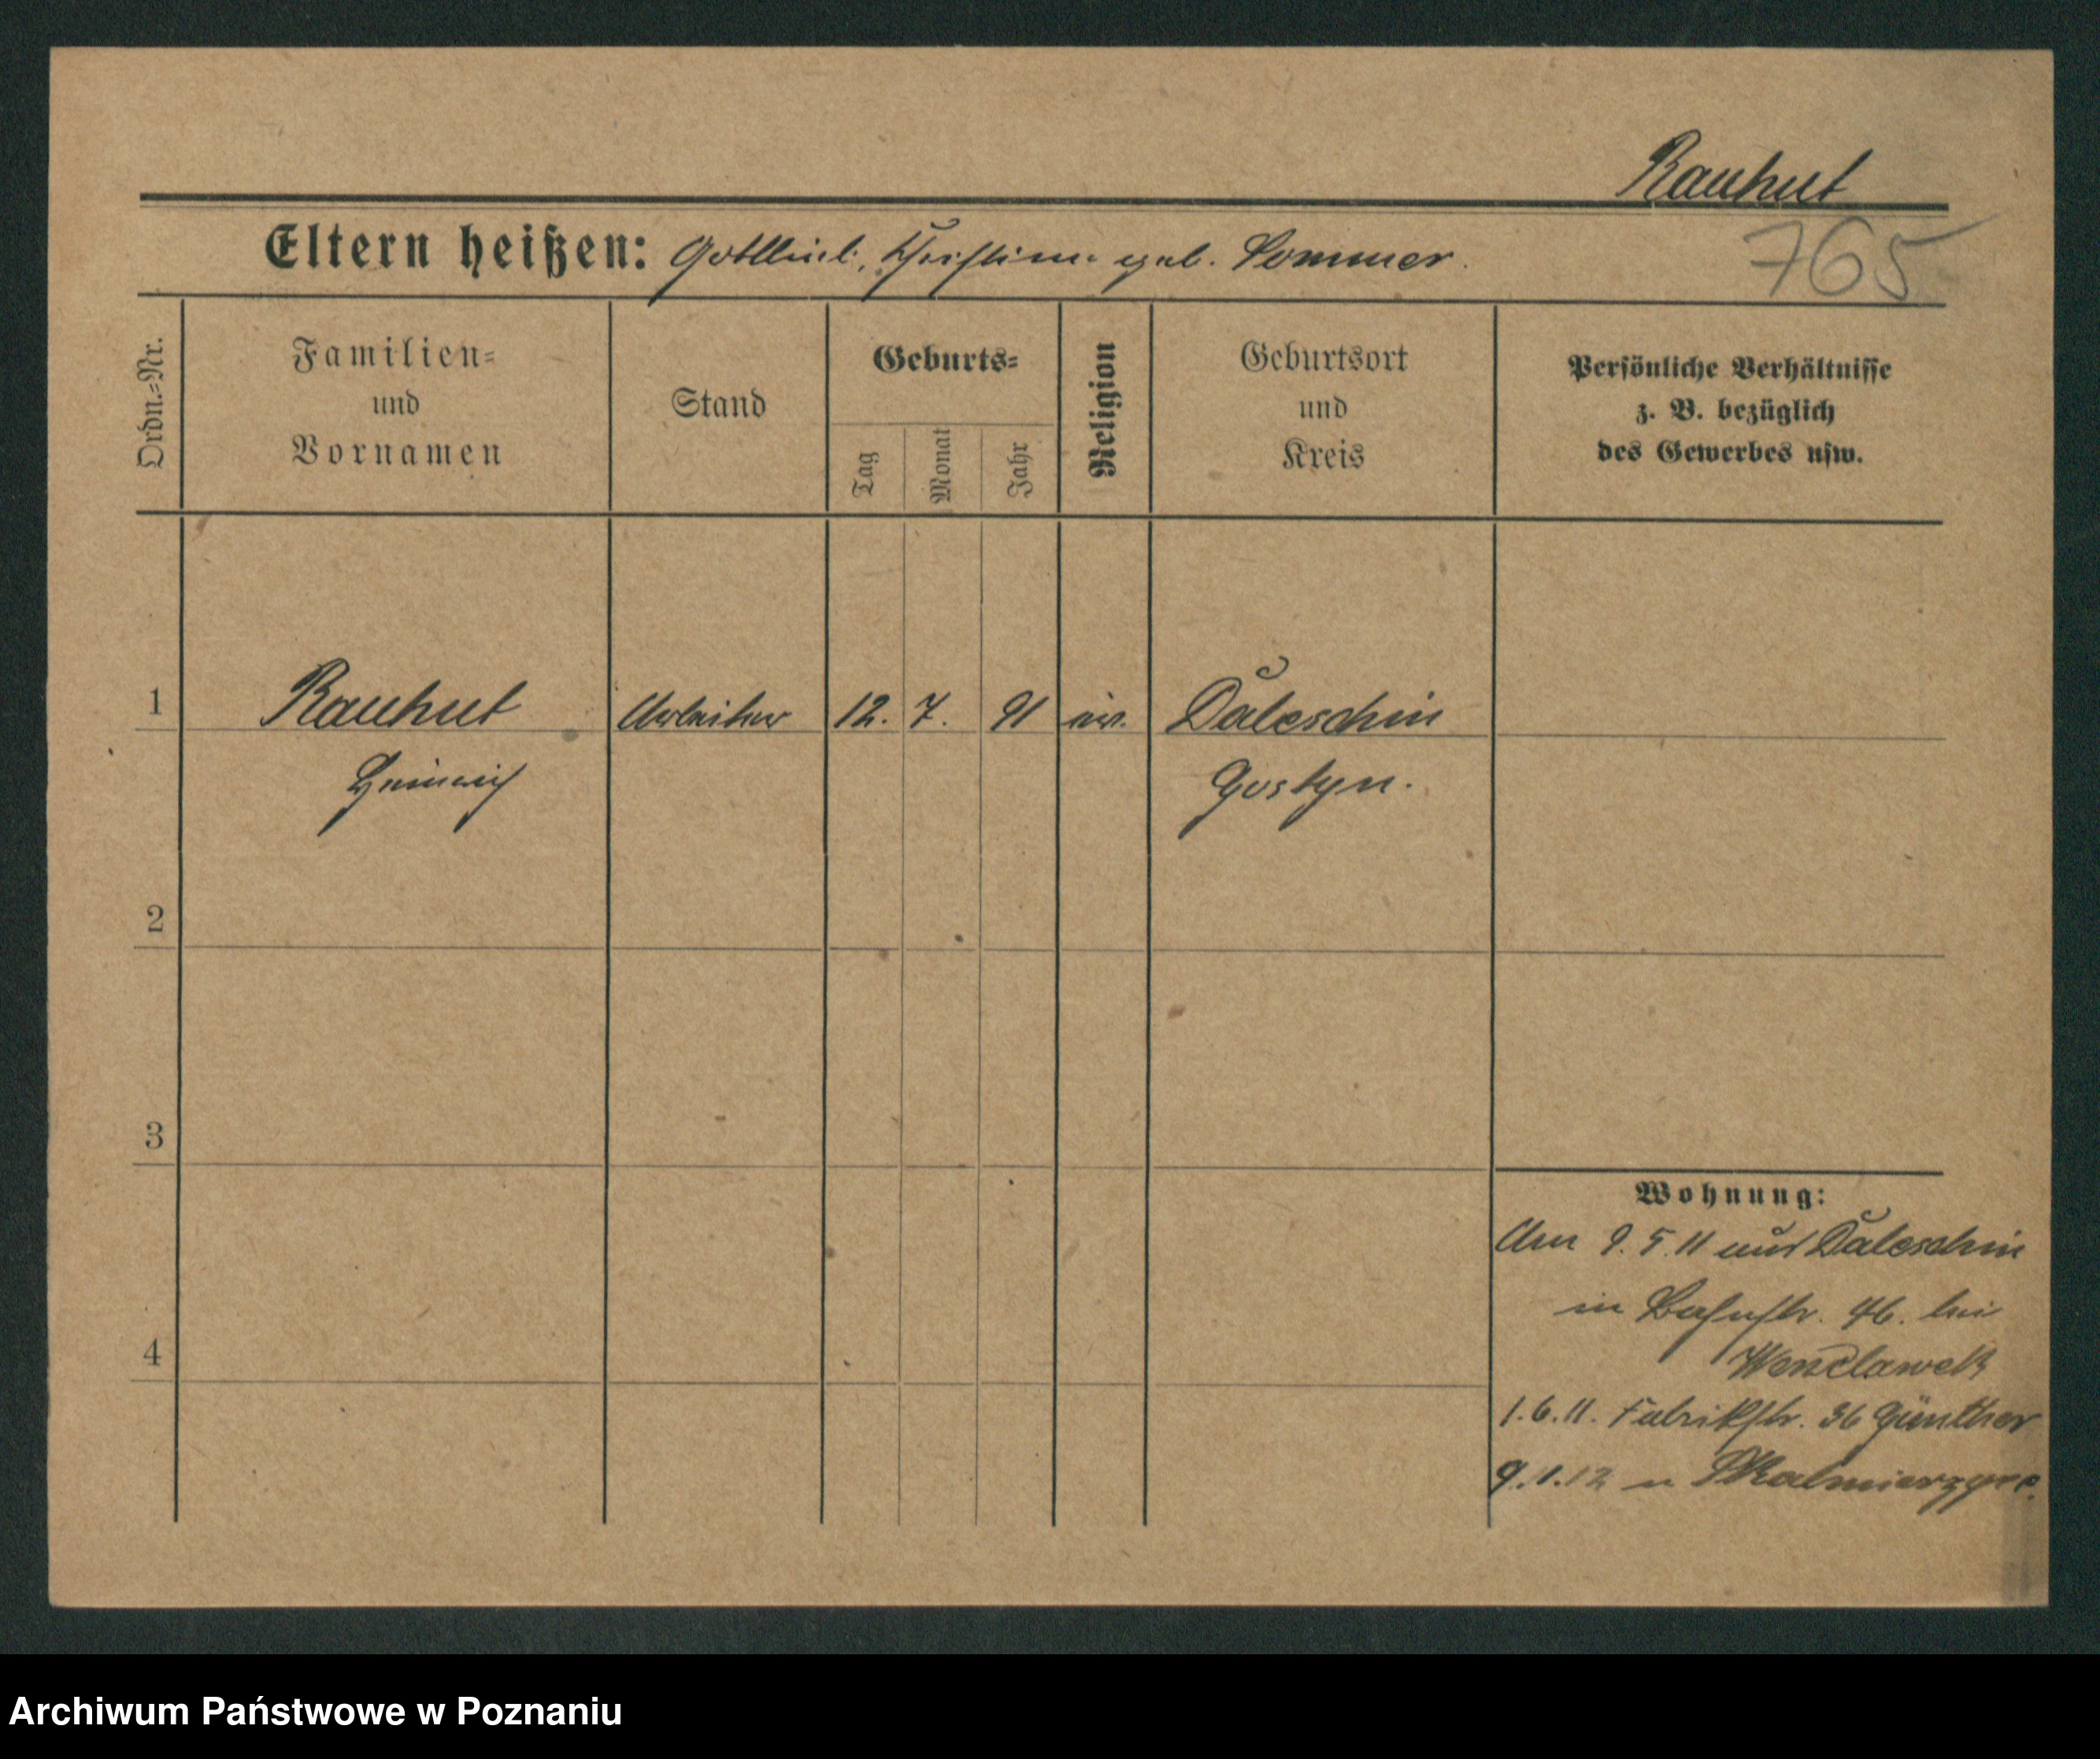 Rauhut
Eltern heißen: Gottlieb, Christine geb. Sommer.
765
Ordn.=Nr.
Familien=
und
Vornamen
Stand
Geburts=
Tag
Monat
Jahr
Religion
Geburtsort
und
Kreis
Persönliche Verhältnisse
z. B. bezüglich
des Gewerbes usw.
1 Rauhut Arbeiter 12. 7. 91 ev. Daleschin
Heinrich Gostyn.
2
3
4
Wohnung:
Am 9. 5. 11 aus Daleschin
in Bahnstr. 46. bei
1. 6. 11. Fabrikstr. 36 Günther
9. 1. 12 n Skalmierzyce.
Archiwum Państwowe w Poznaniu